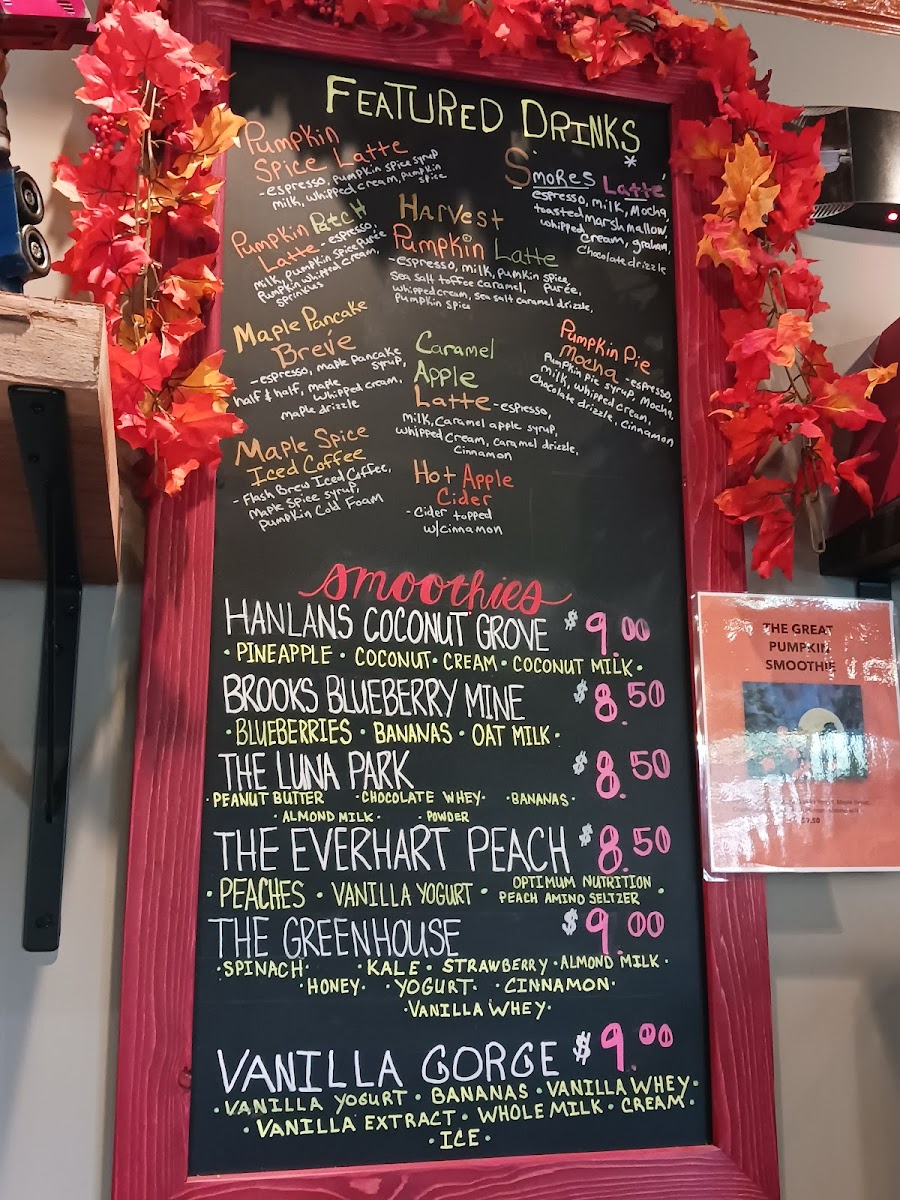 FEATURED DRINKS
*
Pumpkin
Spice Latte
-espresso, pumpkin spice syrup
milk, whipped cream, pumpkin
spice
S'mores Latte
espresso, milk, Mocha,
toasted marshmallow
whipped
cream, graham,
chocolate drizzle
Pumpkin Patch
Latte - espresso,
milk, pumpkin spice purée
Pumpkin whipped cream,
sprinkles
Harvest
Pumpkin Latte
-espresso, milk, pumpkin spice
purée,
sea salt toffee caramel,
whipped cream, sea salt caramel drizzle,
pumpkin spice
Maple Pancake
Brevé
-espresso, maple pancake
syrup,
half & half, maple
whipped cream,
maple drizzle
Caramel
Apple
Latte -espresso,
milk, caramel apple syrup,
whipped cream, caramel drizzle,
cinnamon
Pumpkin Pie
Mocha -espresso,
Pumpkin pie syrup, Mocha,
milk, whipped cream,
chocolate drizzle, cinnamon
Maple Spice
Iced Coffee
- Flash Brew Iced Coffee,
maple spice syrup,
pumpkin Cold Foam
Hot Apple
Cider
- Cider topped
w/cinnamon
smoothies
HANLANS COCONUT GROVE $9.00
• PINEAPPLE • COCONUT • CREAM • COCONUT MILK •
BROOKS BLUEBERRY MINE $8.50
• BLUEBERRIES • BANANAS • OAT MILK •
THE LUNA PARK $8.50
• PEANUT BUTTER • CHOCOLATE WHEY • • BANANAS •
• ALMOND MILK • • POWDER
THE EVERHART PEACH $8.50
• PEACHES • VANILLA YOGURT • OPTIMUM NUTRITION •
PEACH AMINO SELTZER
THE GREENHOUSE $9.00
• SPINACH • • KALE • STRAWBERRY • ALMOND MILK •
• HONEY • • YOGURT • • CINNAMON •
• VANILLA WHEY •
VANILLA GORGE $9.00
• VANILLA YOGURT • BANANAS • VANILLA WHEY •
• VANILLA EXTRACT • WHOLE MILK • CREAM •
• ICE •
THE GREAT
PUMPKIN
SMOOTHIE